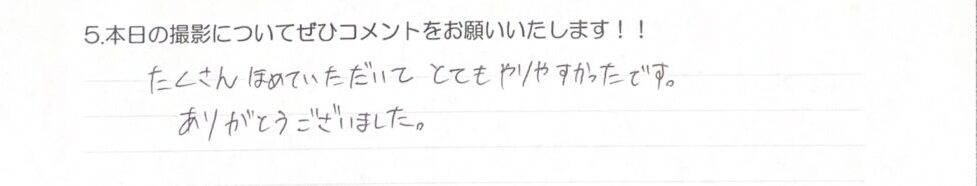 5.本日の撮影についてぜひコメントをお願いいたします！！
たくさんほめていただいて とてもやりやすかったです。
ありがとうございました。